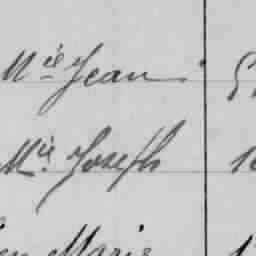 Mie Jean
Mie Joseph
Marie